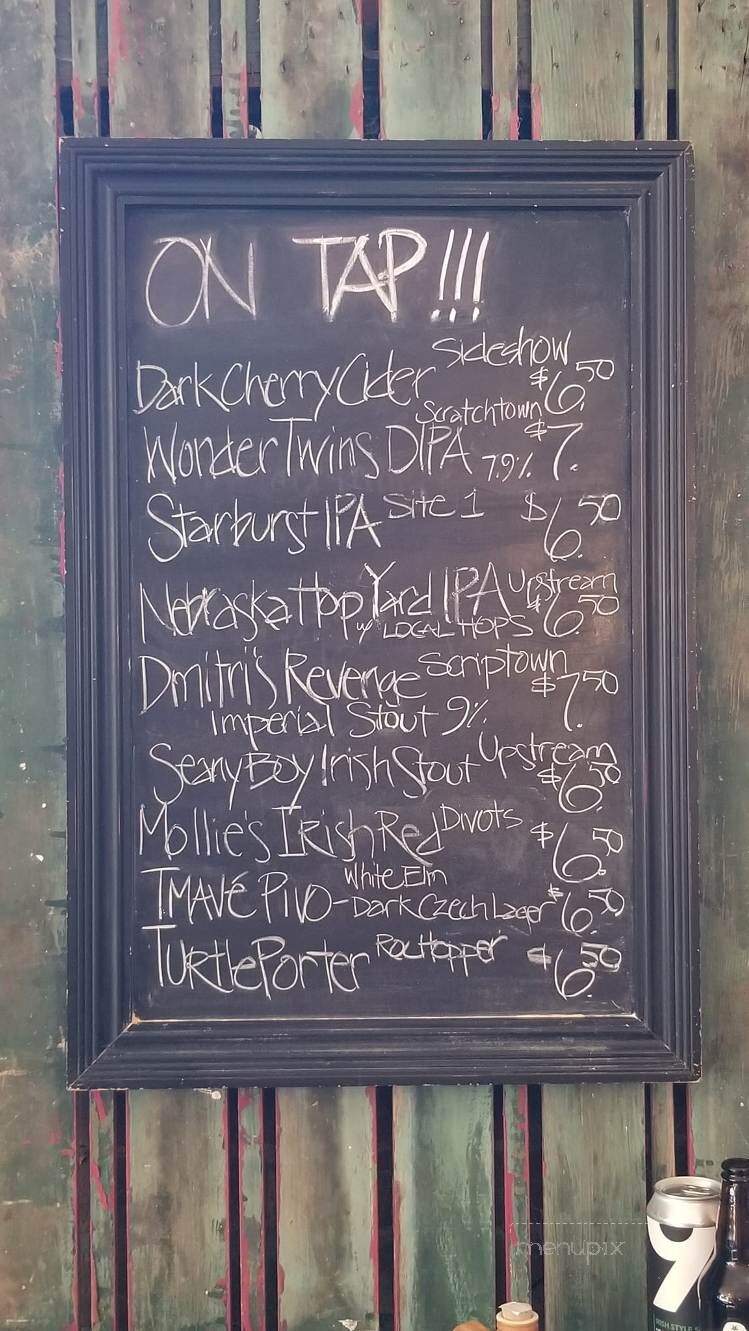 ON TAP!!!
Dark Cherry Cider Sideshow $6.50
Wonder Twins DIPA 7.9% Scratchtown $7.
Starburst IPA Site 1 $6.50
Nebraska Hop Yard IPA Upstream $6.50
w/ LOCAL HOPS
Dmitri's Revenge Scriptown $7.50
Imperial Stout 9%
Seany Boy Irish Stout Upstream $6.50
Mollie's Irish Red Divots $6.50
TMAVÉ PIVO - Dark Czech Lager White Elm $6.50
Turtle Porter $6.50
9
IRISH STYLE
menupix